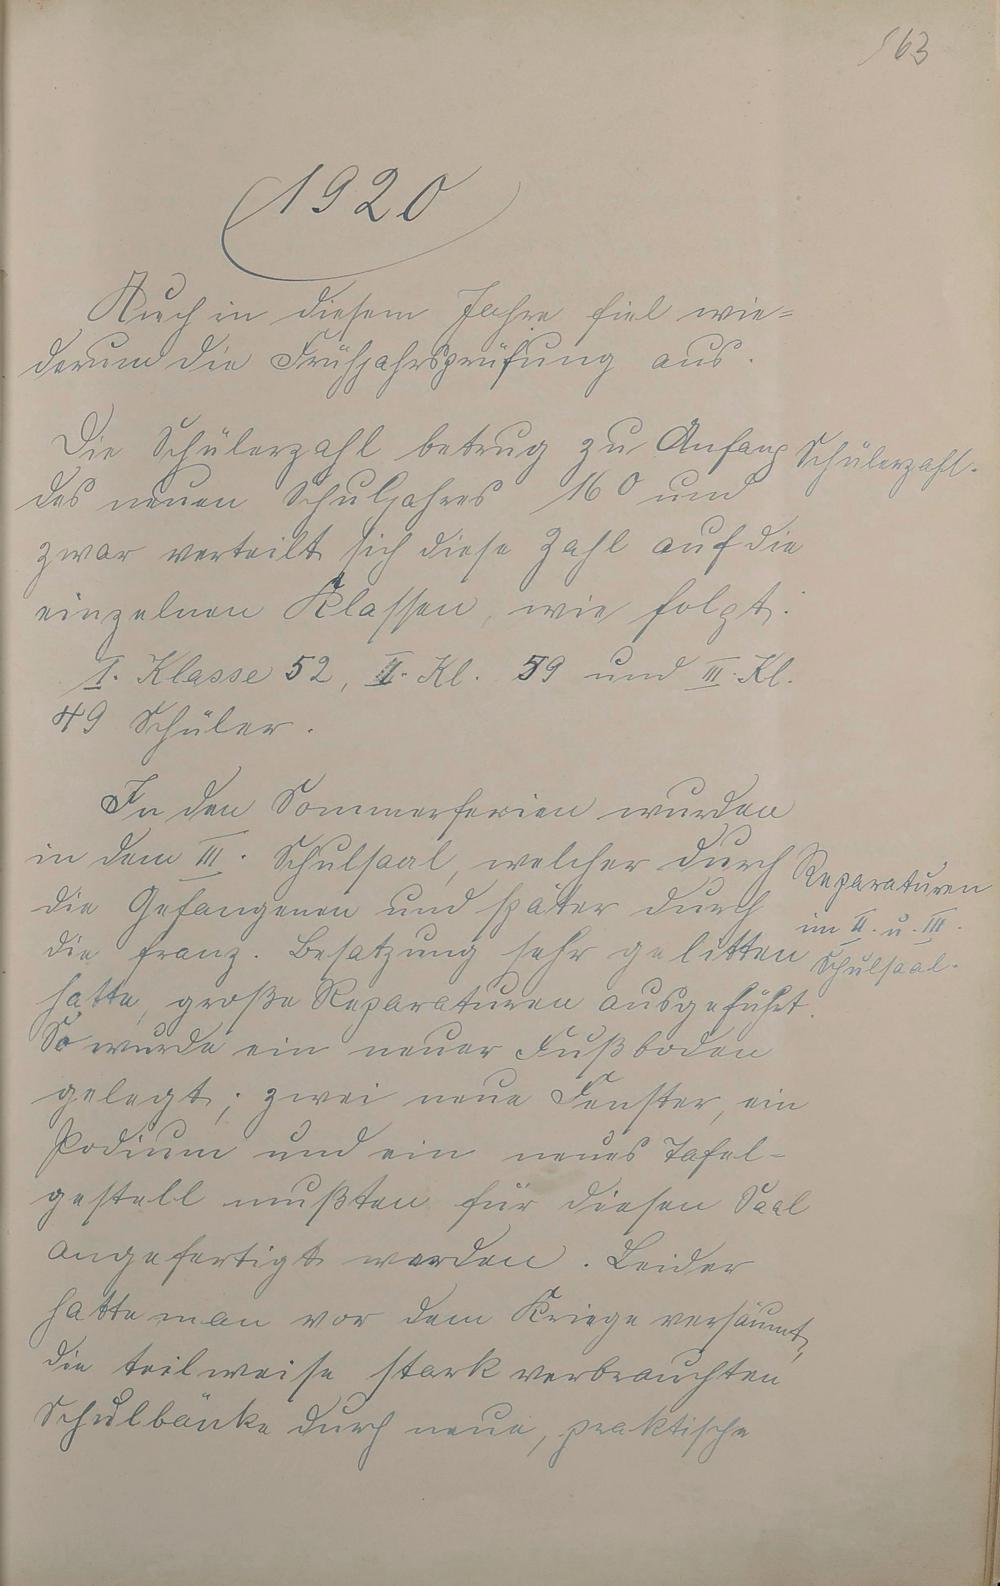 163
1920
Auch in diesem Jahre fiel wie=
derum die Frühjahrsprüfung aus.
Die Schülerzahl betrug zu Anfang
Schülerzahl.
des neuen Schuljahres 160 und
zwar verteilt sich diese Zahl auf die
einzelnen Klassen, wie folgt:
I. Klasse 52, II. Kl. 59 und III. Kl.
49 Schüler.
In den Sommerferien wurden
in dem III. Schulsaal, welcher durch
die Gefangenen und später durch
die franz. Besatzung sehr gelitten
hatte, große Reparaturen ausgeführt.
Reparaturen
im II. u. III.
Schulsaal.
So wurde ein neuer Fußboden
gelegt; zwei neue Fenster, ein
Podium und ein neues Tafel-
gestell mußten für diesen Saal
angefertigt werden. Leider
hatte man vor dem Kriege versäumt,
die teilweise stark verbrauchten
Schulbänke durch neue, praktische